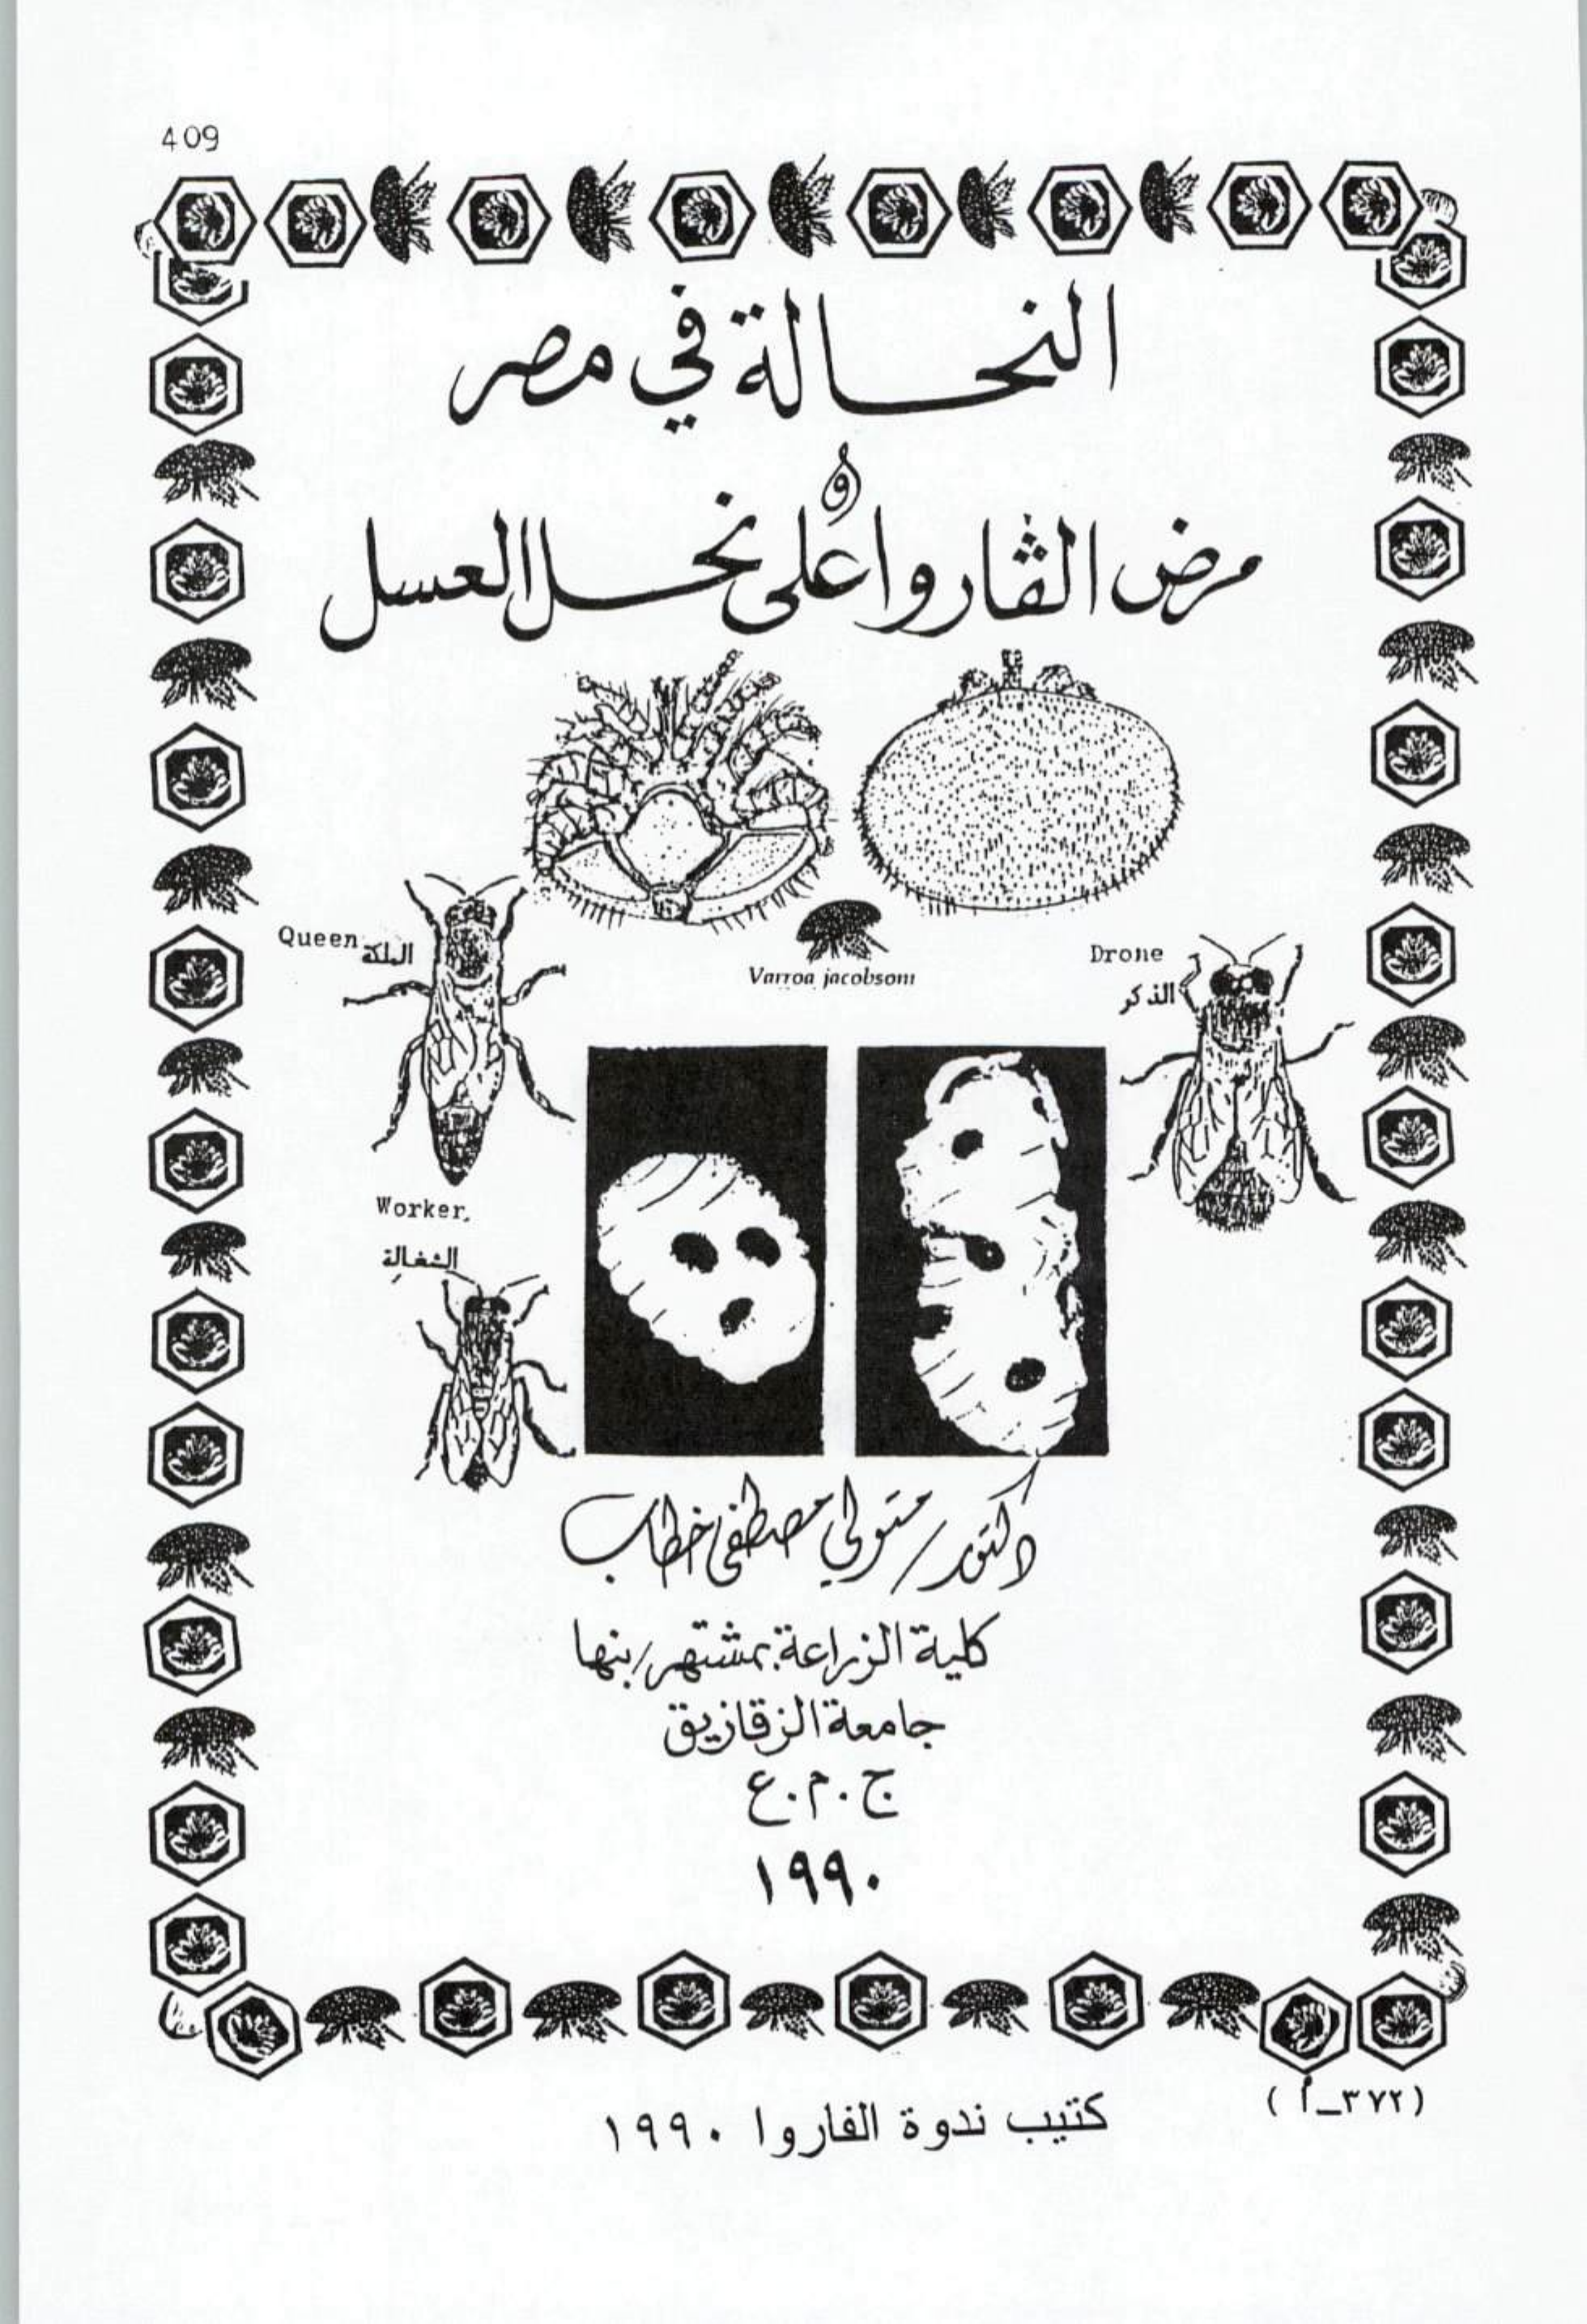 409
النحالة في مصر
و
مرض الڤاروا على نحل العسل
Queen الملكة
Varroa jacobsoni
Drone
الذكر
Worker
الشغالة
دكتور/ متولي مصطفى خطاب
كلية الزراعة بمشتهر/بنها
جامعة الزقازيق
ج.م.ع
١٩٩٠
(٣٧٢_أ)
كتيب ندوة الفاروا ١٩٩٠